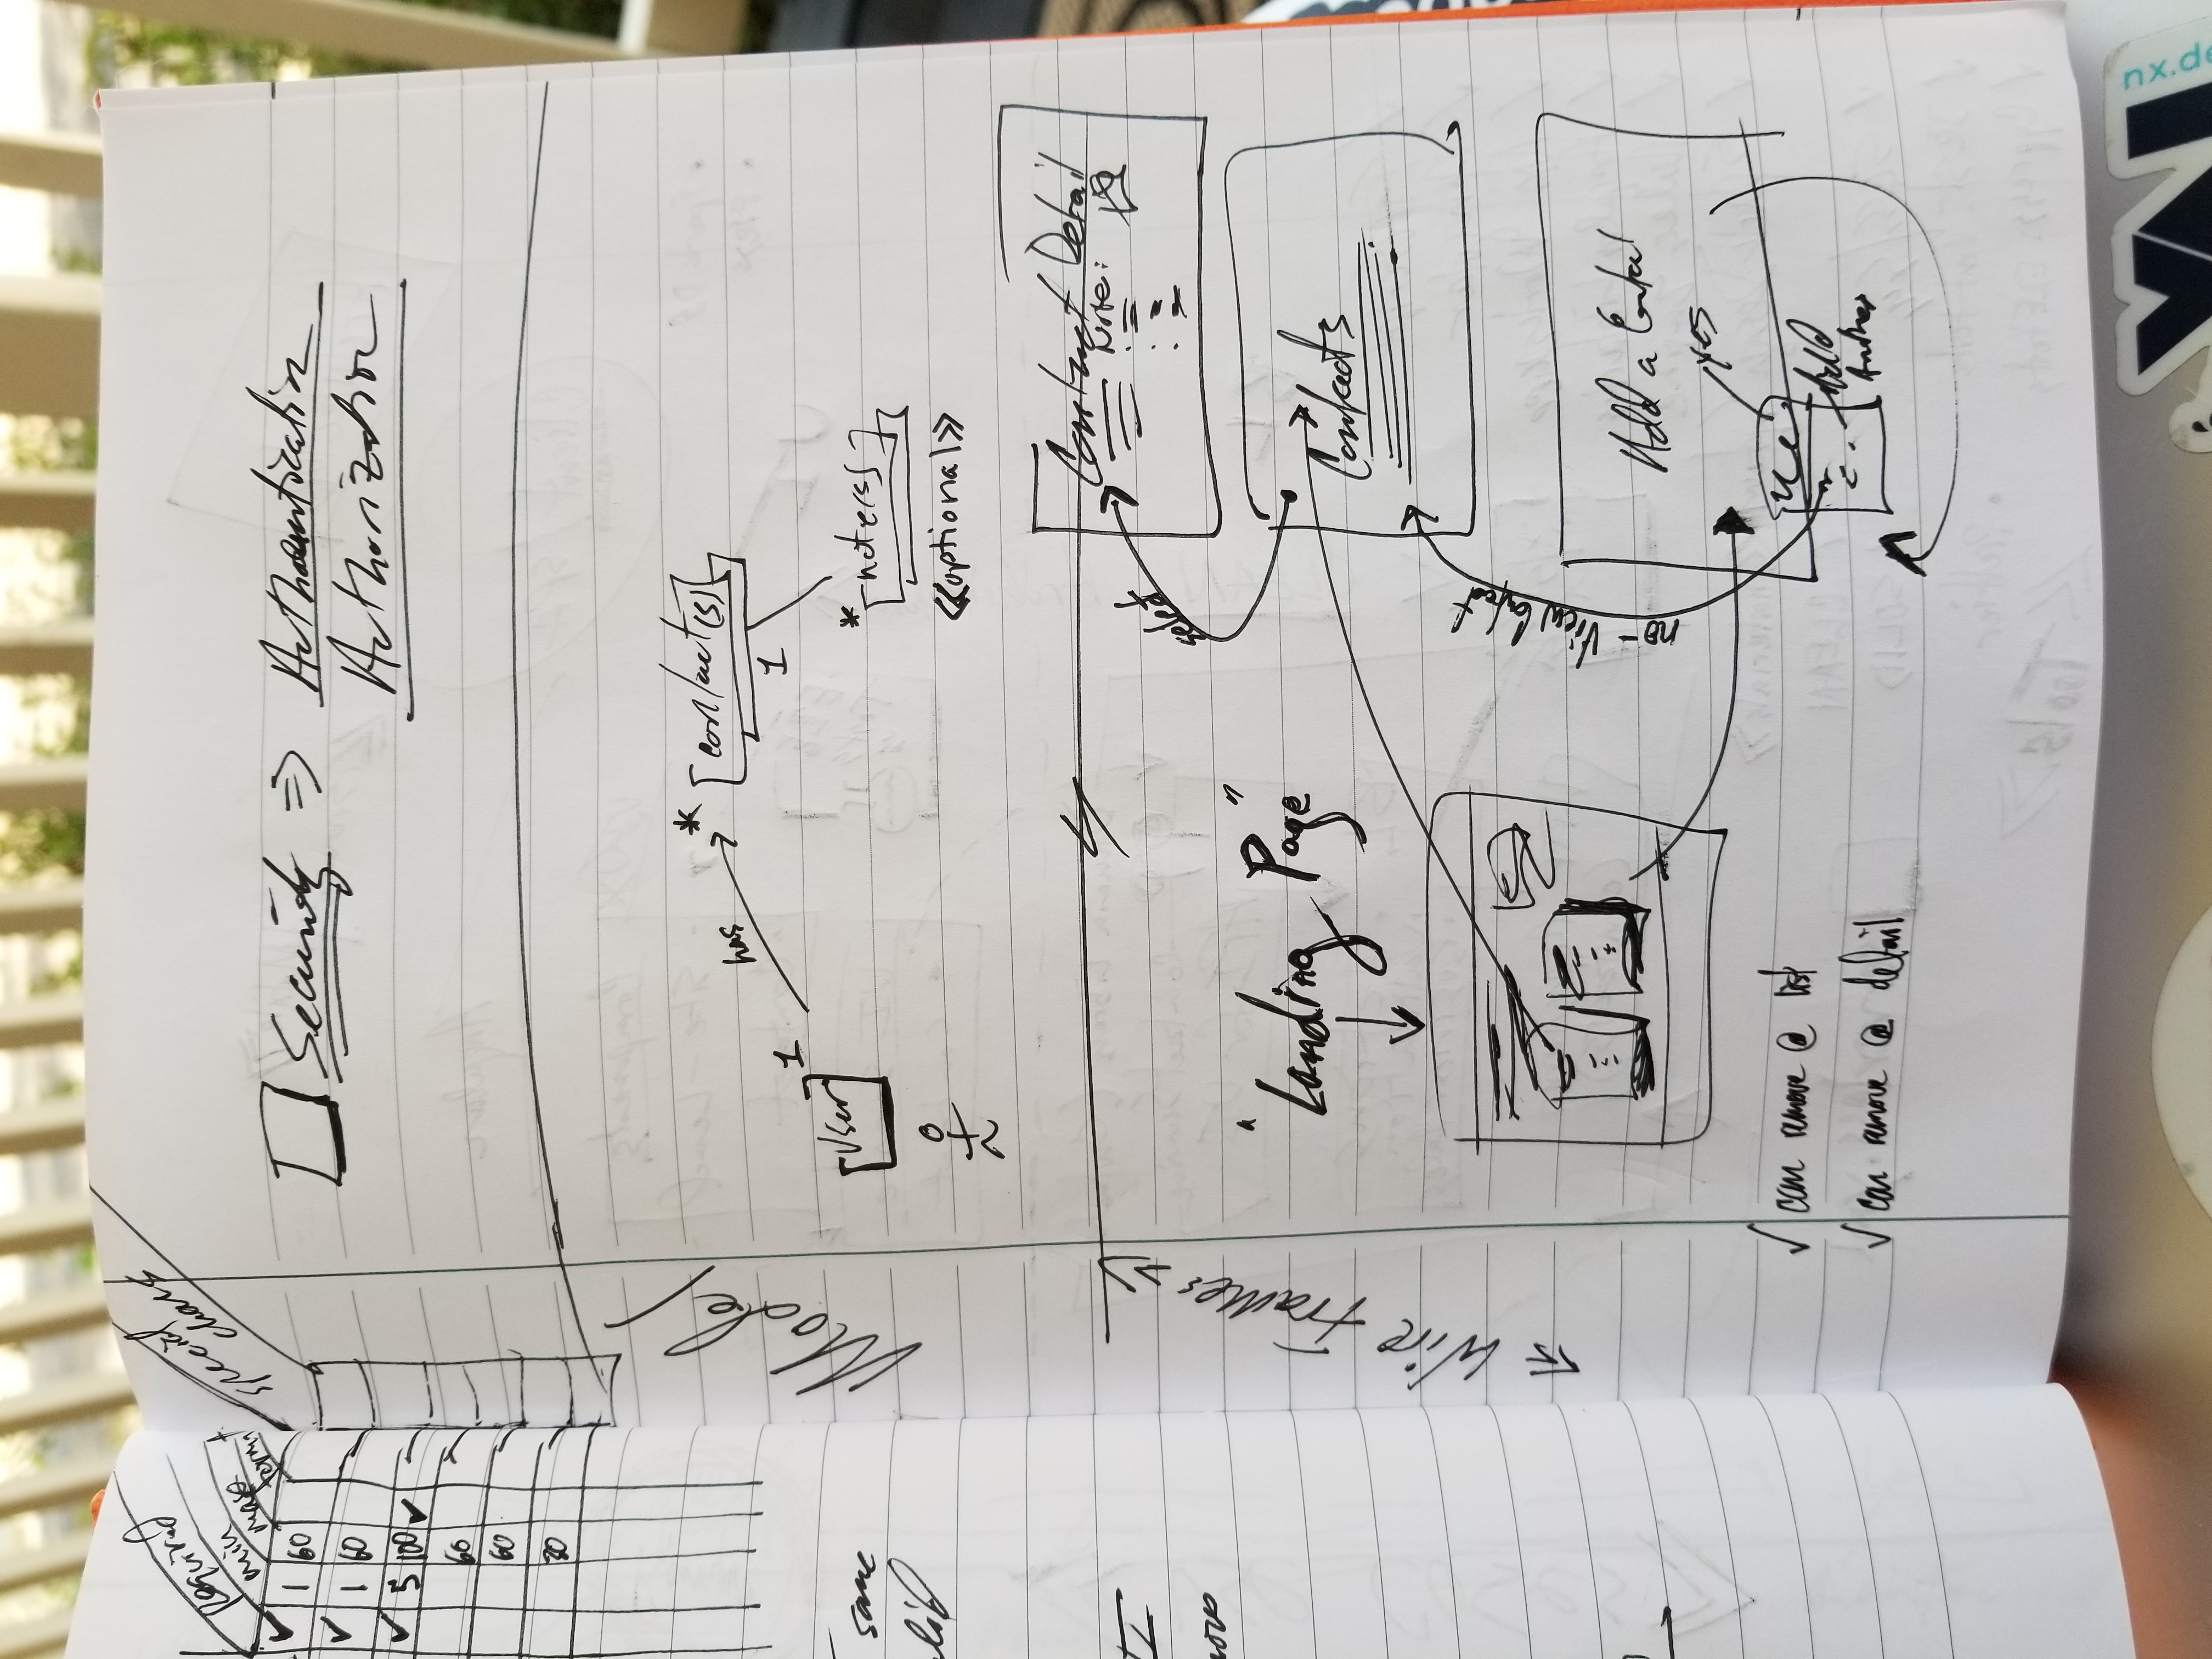 Required
min
max
format
special
chars
✓ 1 60
✓ 1 60
✓ 5 100 ✓
60
60
30
same
Security => Authentication
Authorization
Model
User 1
has
* contact(s)
1
* note(s)
<<optional>>
<< Wire Frames >>
"Landing Page"
Contact Detail
Note:
select
Contacts
no - View Contact
Add a Contact
yes
Add
Another
✓ can remove @ list
✓ can remove @ detail
nx.de